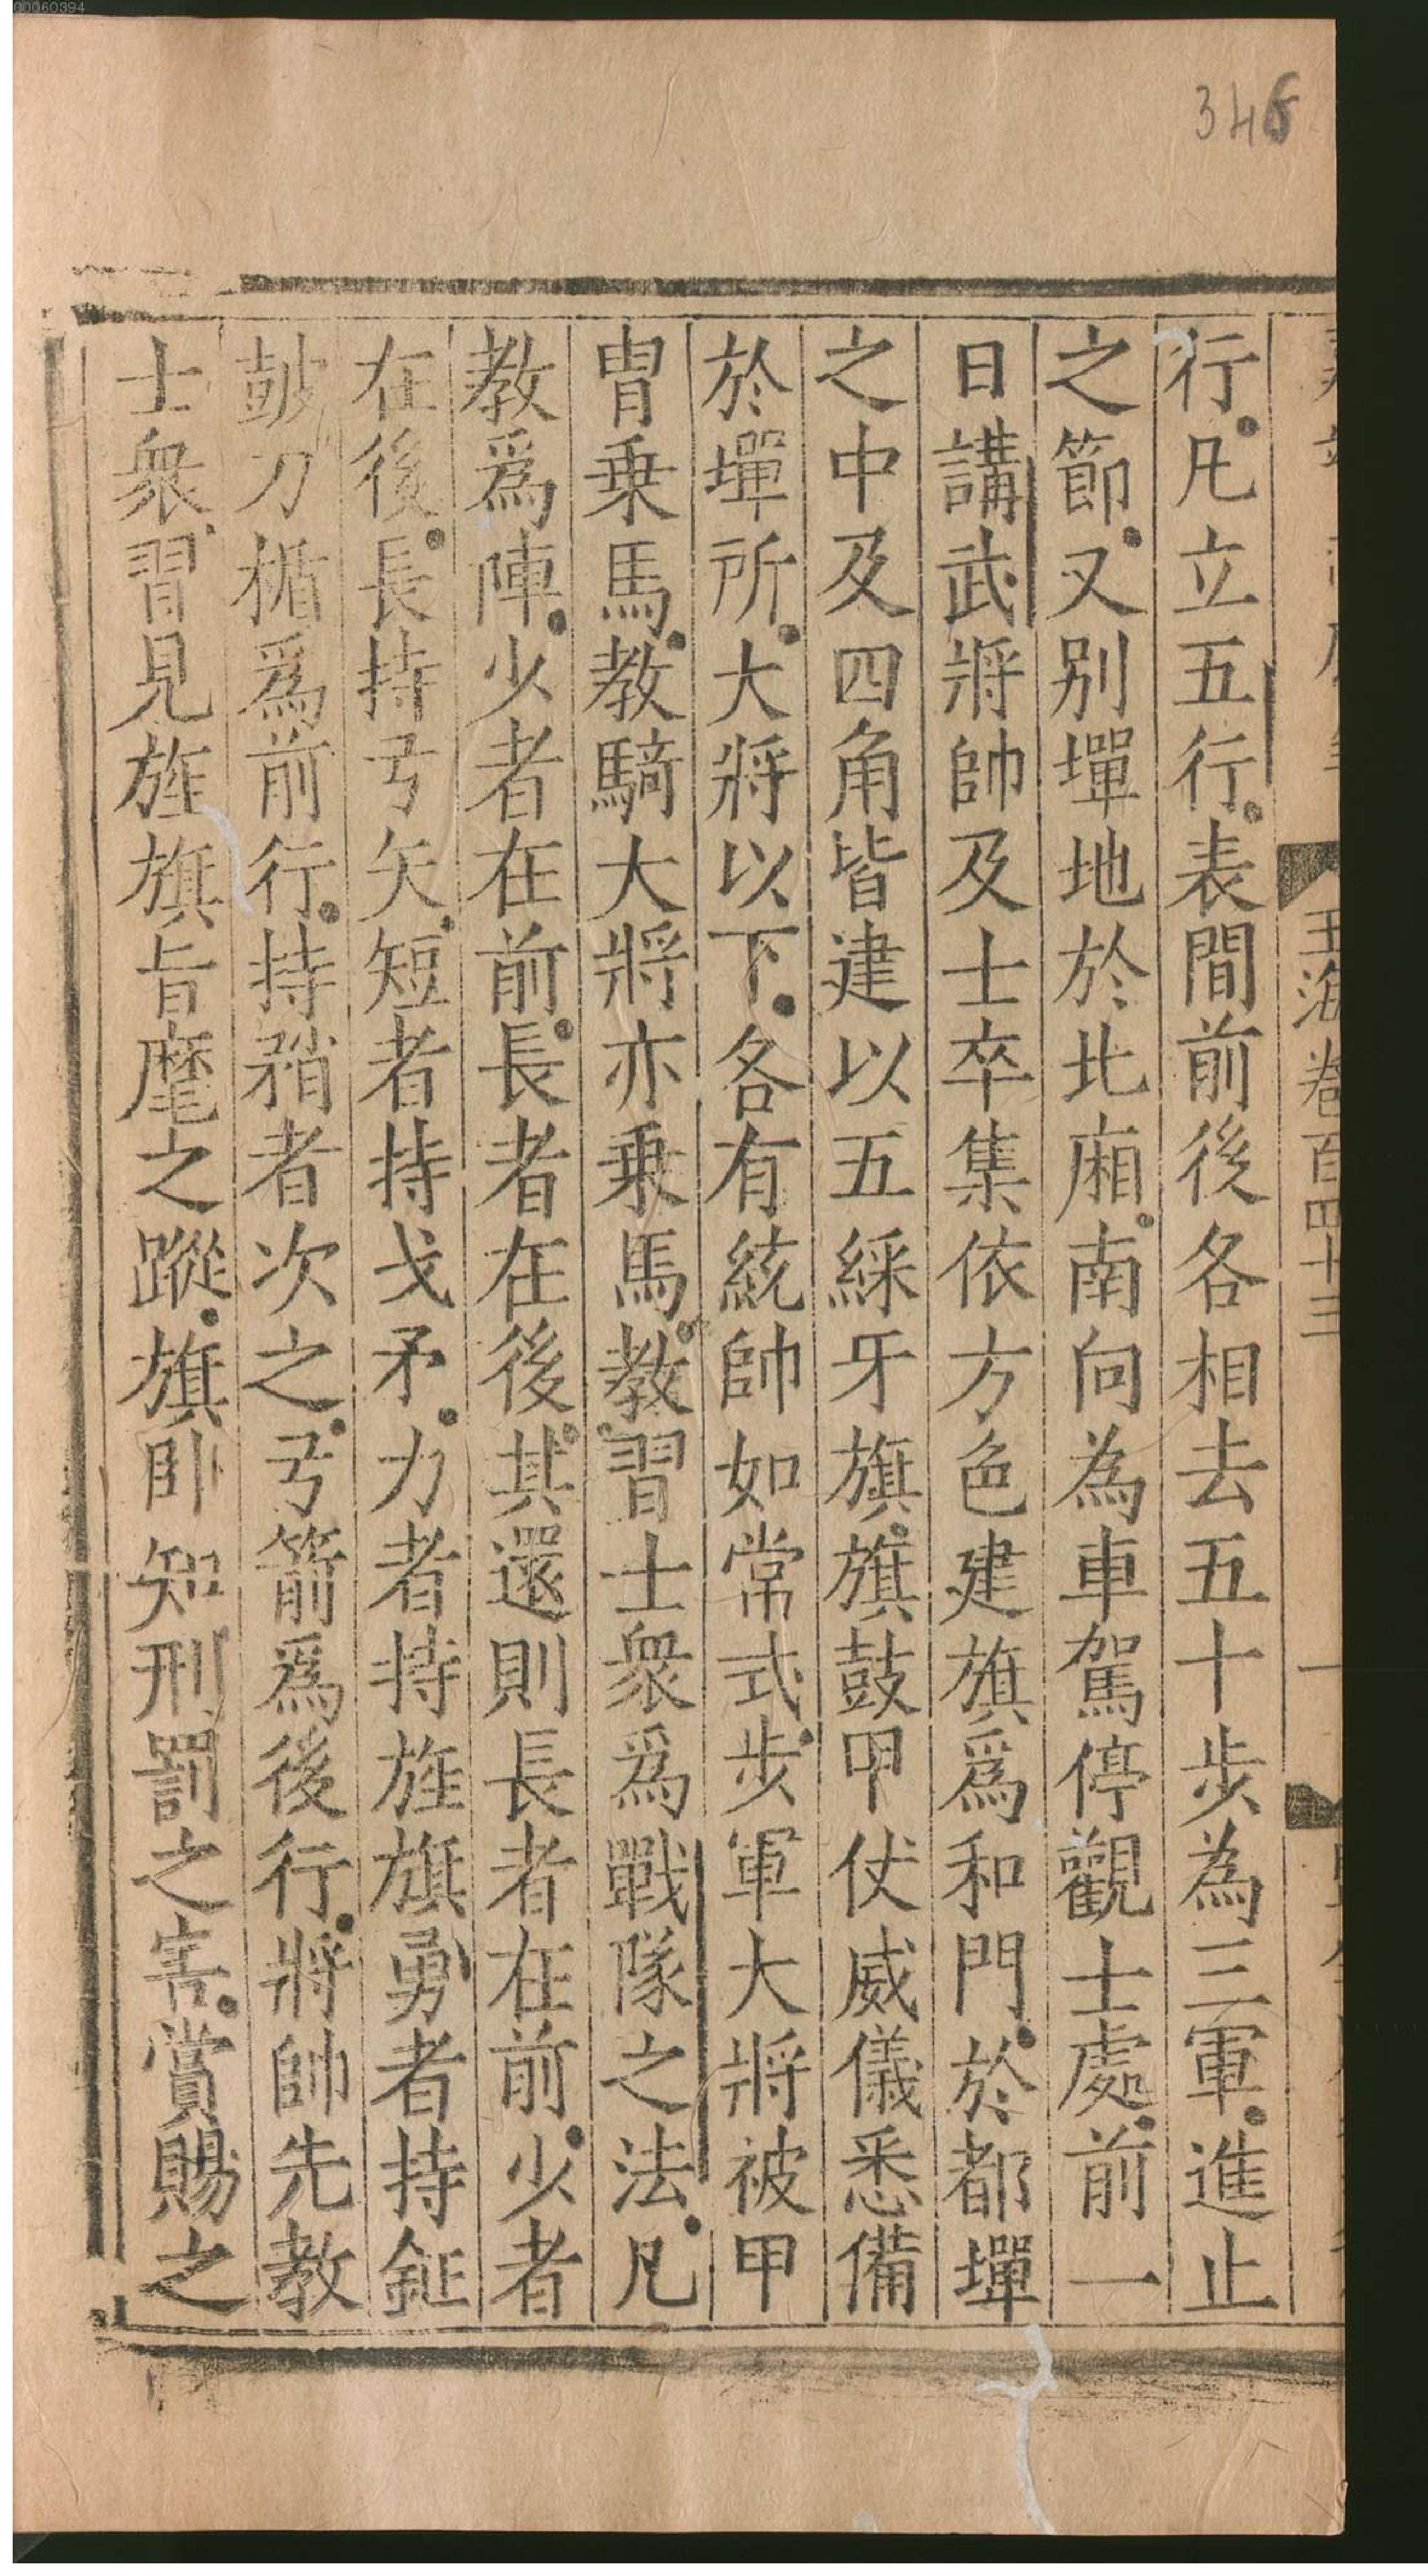 00060394
346
玉海卷百四十三
行凡立五行表間前後各相去五十步為三軍進止
之節又别墠地於北廂南向為車駕停觀士處前一
日講武將帥及士卒集依方色建旗爲和門於都墠
之中及四角皆建以五綵牙旗旗鼓甲仗威儀悉備
於墠所大將以下各有統帥如常式步軍大將被甲
胄乗馬教騎大將亦乗馬教習士衆爲戰隊之法凡
教爲陣少者在前長者在後其還則長者在前少者
在後長持弓矢短者持戈矛力者持旌旗勇者持鉦
鼓刀楯爲前行持矟者次之弓箭爲後行將帥先教
士衆習見旌旗旨麾之蹤旗卧知刑罰之害賞賜之